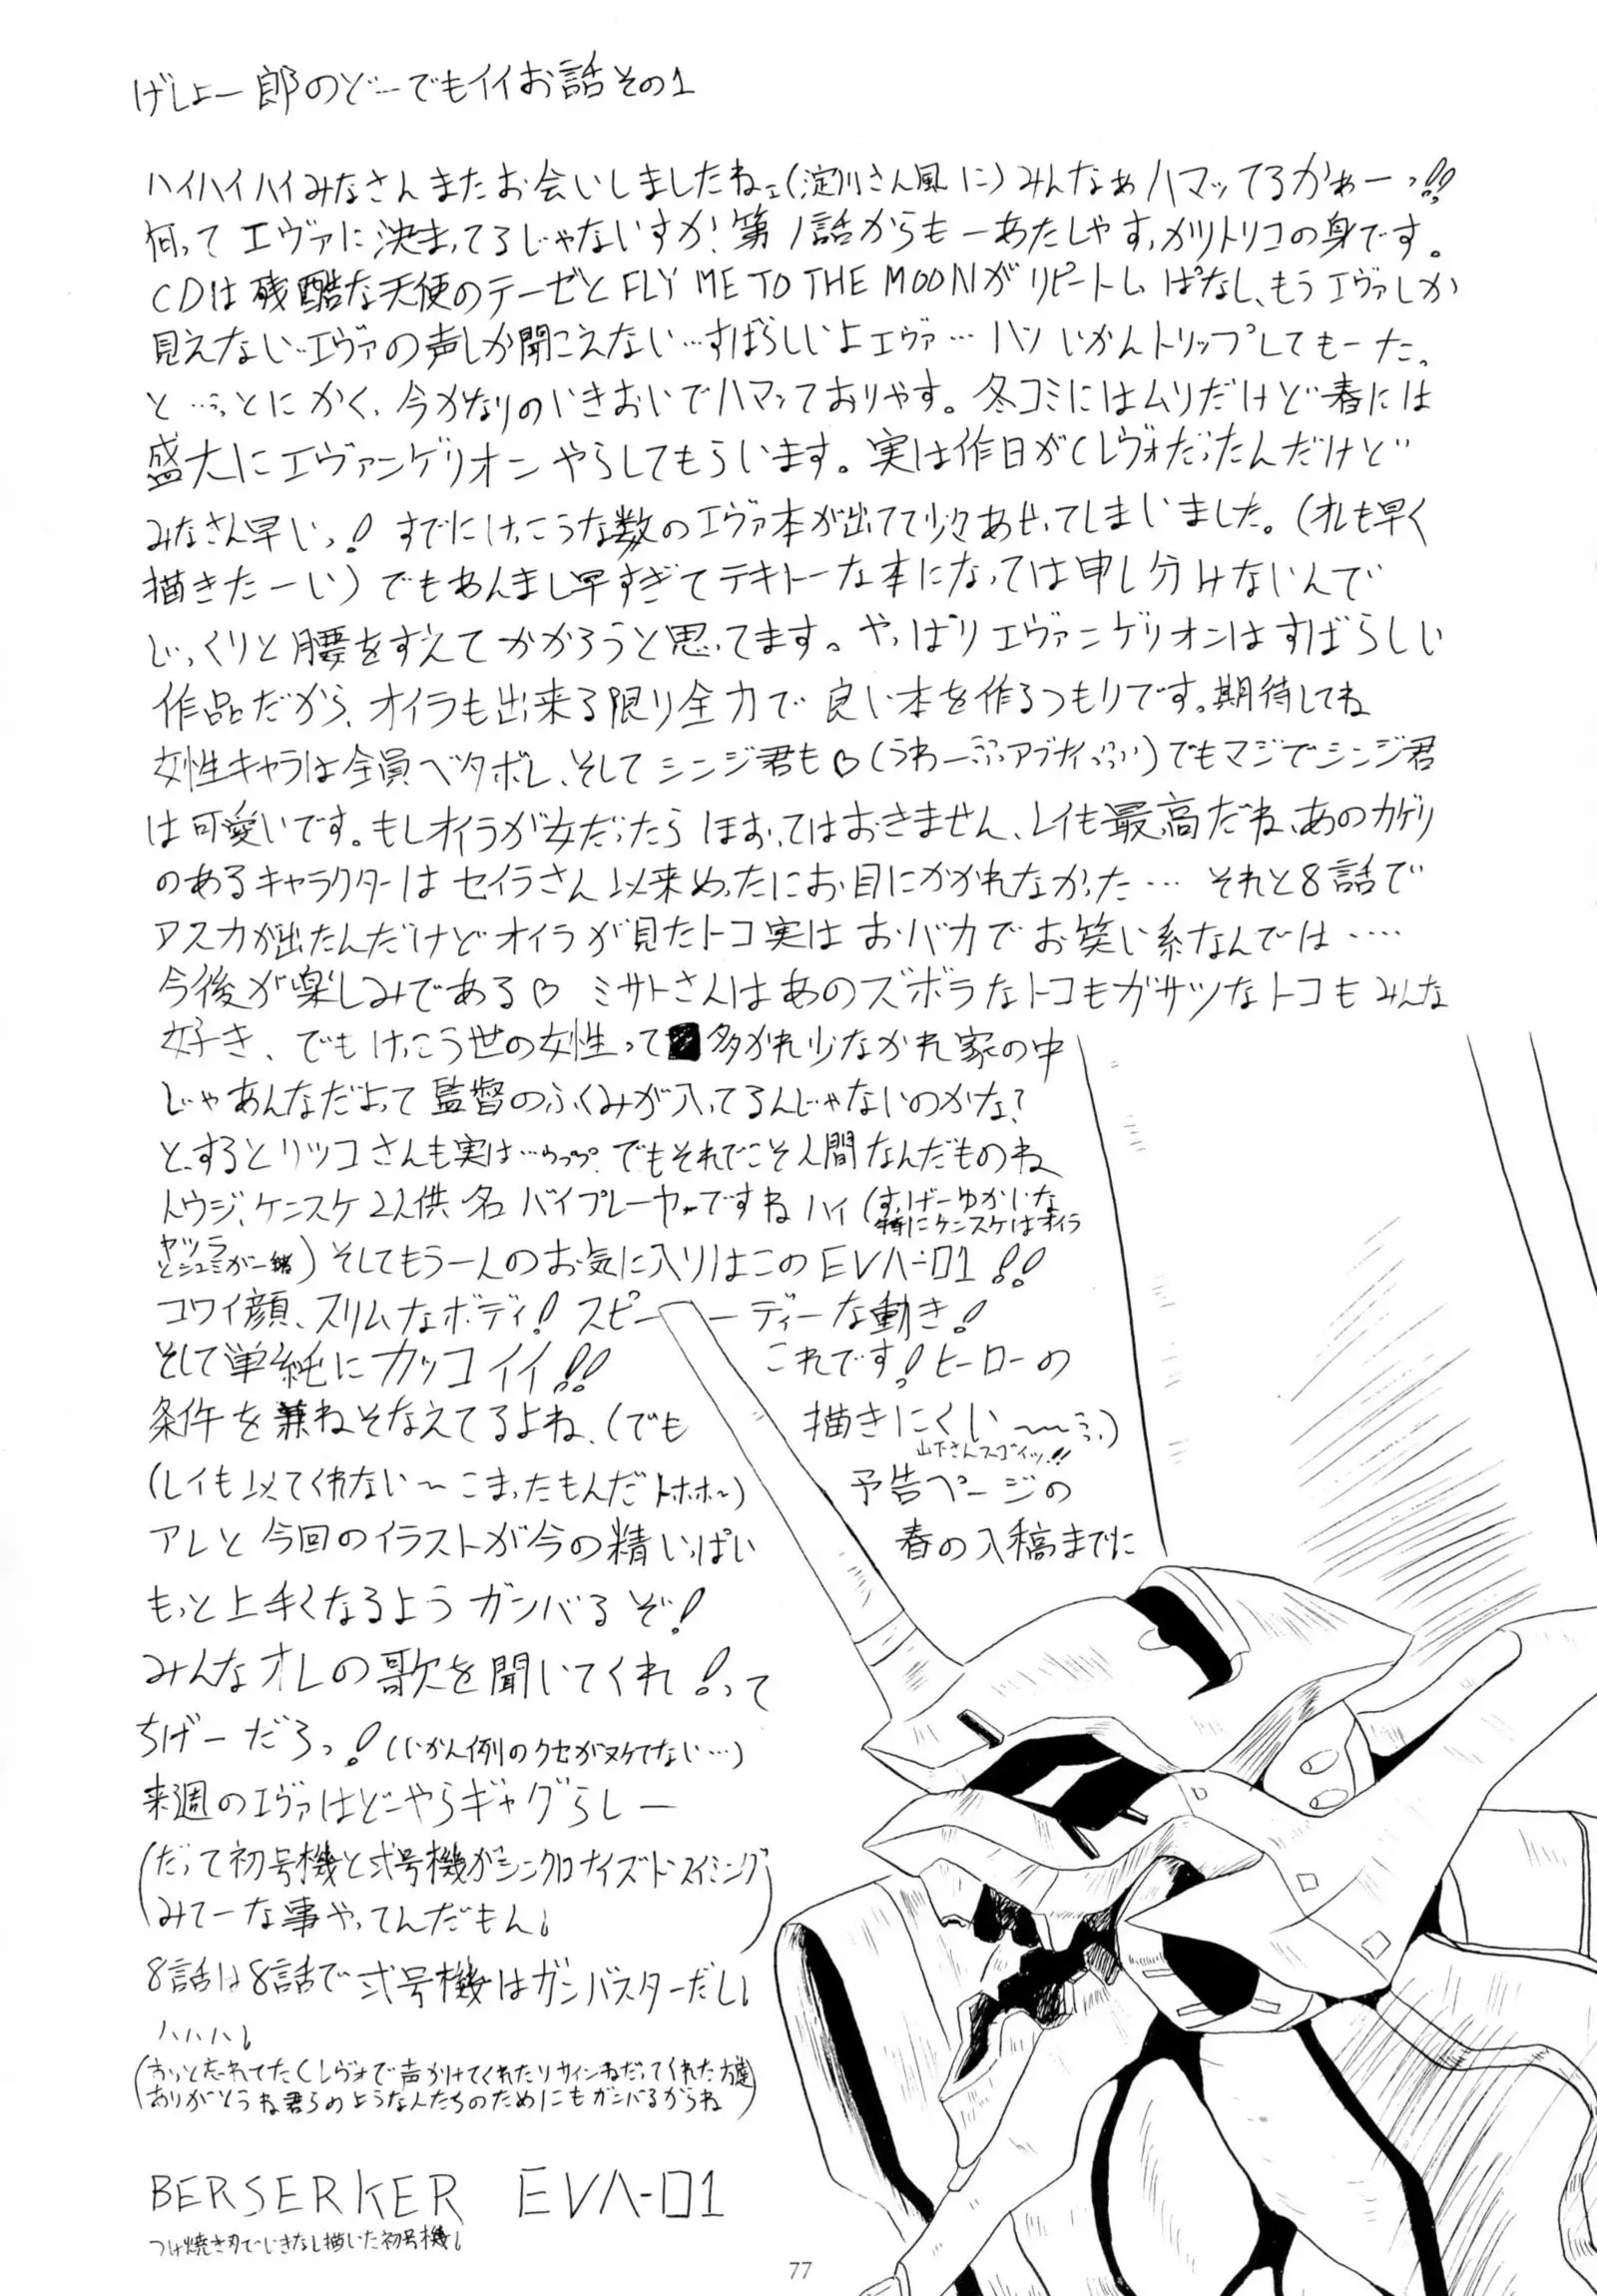 げしょ一郎のどーでもイイお話その1
ハイハイハイみなさんまたお会いしましたねェ(淀川さん風に)みんなぁハマッてるかぁーっ!!
何ってエヴァに決まってるじゃないすか!第1話からもーあたしゃすっかりトリコの身です。
CDは残酷な天使のテーゼとFLY ME TO THE MOONがリピートしっぱなし、もうエヴァしか
見えない…エヴァの声しか聞こえない…すばらしいよエヴァ…ハッいかんトリップしてもーた。
と…っとにかく、今かなりのいきおいでハマッておりやす。冬コミにはムリだけど春には
盛大にエヴァンゲリオンやらしてもらいます。実は昨日がCレヴォだったんだけど
みなさん早いっ!すでにけっこうな数のエヴァ本が出てて少々あせってしまいました。(オレも早く
描きたーい)でもあんまし早すぎてテキトーな本になっては申し分けないんで
じっくりと腰をすえてかかろうと思ってます。やっぱりエヴァンゲリオンはすばらしい
作品だから、オイラも出来る限り全力で良い本を作るつもりです。期待してね
女性キャラは全員ベタボレ、そしてシンジ君も♡(うわーっアブナイっ)でもマジでシンジ君
は可愛いです。もしオイラが女だったらほおってはおきません、レイも最高だね、あのカゲリ
のあるキャラクターはセイラさん以来めったにお目にかかれなかった…それと8話で
アスカが出たんだけどオイラが見たトコ実はおバカでお笑い系なんでは‥‥
今後が楽しみである♡ミサトさんはあのズボラなトコもガサツなトコもみんな
好き、でもけっこう世の女性って多かれ少なかれ家の中
じゃあんなだよって監督のふくみが入ってるんじゃないのかな?
とするとリツコさんも実は…うっぷっ。でもそれでこそ人間なんだものね
トウジ、ケンスケ2人供名バイプレーヤーですねハイ(すげーゆかいな
ヤツラ 特にケンスケはオイラ
とシュミが一緒)そしてもう一人のお気に入りはこのEVA-01!!
コワイ顔、スリムなボディ!スピーーディーな動き!
そして単純にカッコイイ!!これです!ヒーローの
条件を兼ねそなえてるよね、(でも描きにくい〜〜っ)
山下さんスゴイッ!!
(レイも似てくれない〜こまったもんだトホホ〜)予告ページの
アレと今回のイラストが今の精いっぱい春の入稿までに
もっと上手くなるようガンバるぞ!
みんなオレの歌を聞いてくれ!って
ちげーだろっ!(いかん例のクセがヌケてない…)
来週のエヴァはどーやらギャグらしー
(だって初号機と弐号機がシンクロナイズドスイミング
みてーな事やってんだもん)
8話は8話で弐号機はガンバスターだし
ハハハ
(おっと忘れてたCレヴォで声かけてくれたりサインねだってくれた方達
ありがとうね君らのような人たちのためにもガンバるからね)
BERSERKER EVA-01
つけ焼き刃でいきなし描いた初号機
77